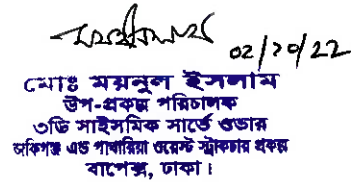 ০২/১০/২২
মোঃ ময়নুল ইসলাম
উপ-প্রকল্প পরিচালক
৩ডি সাইসমিক সার্ভে ওভার
জকিগঞ্জ এন্ড পাথারিয়া ওয়েস্ট স্ট্রাকচার প্রকল্প
বাপেক্স, ঢাকা।